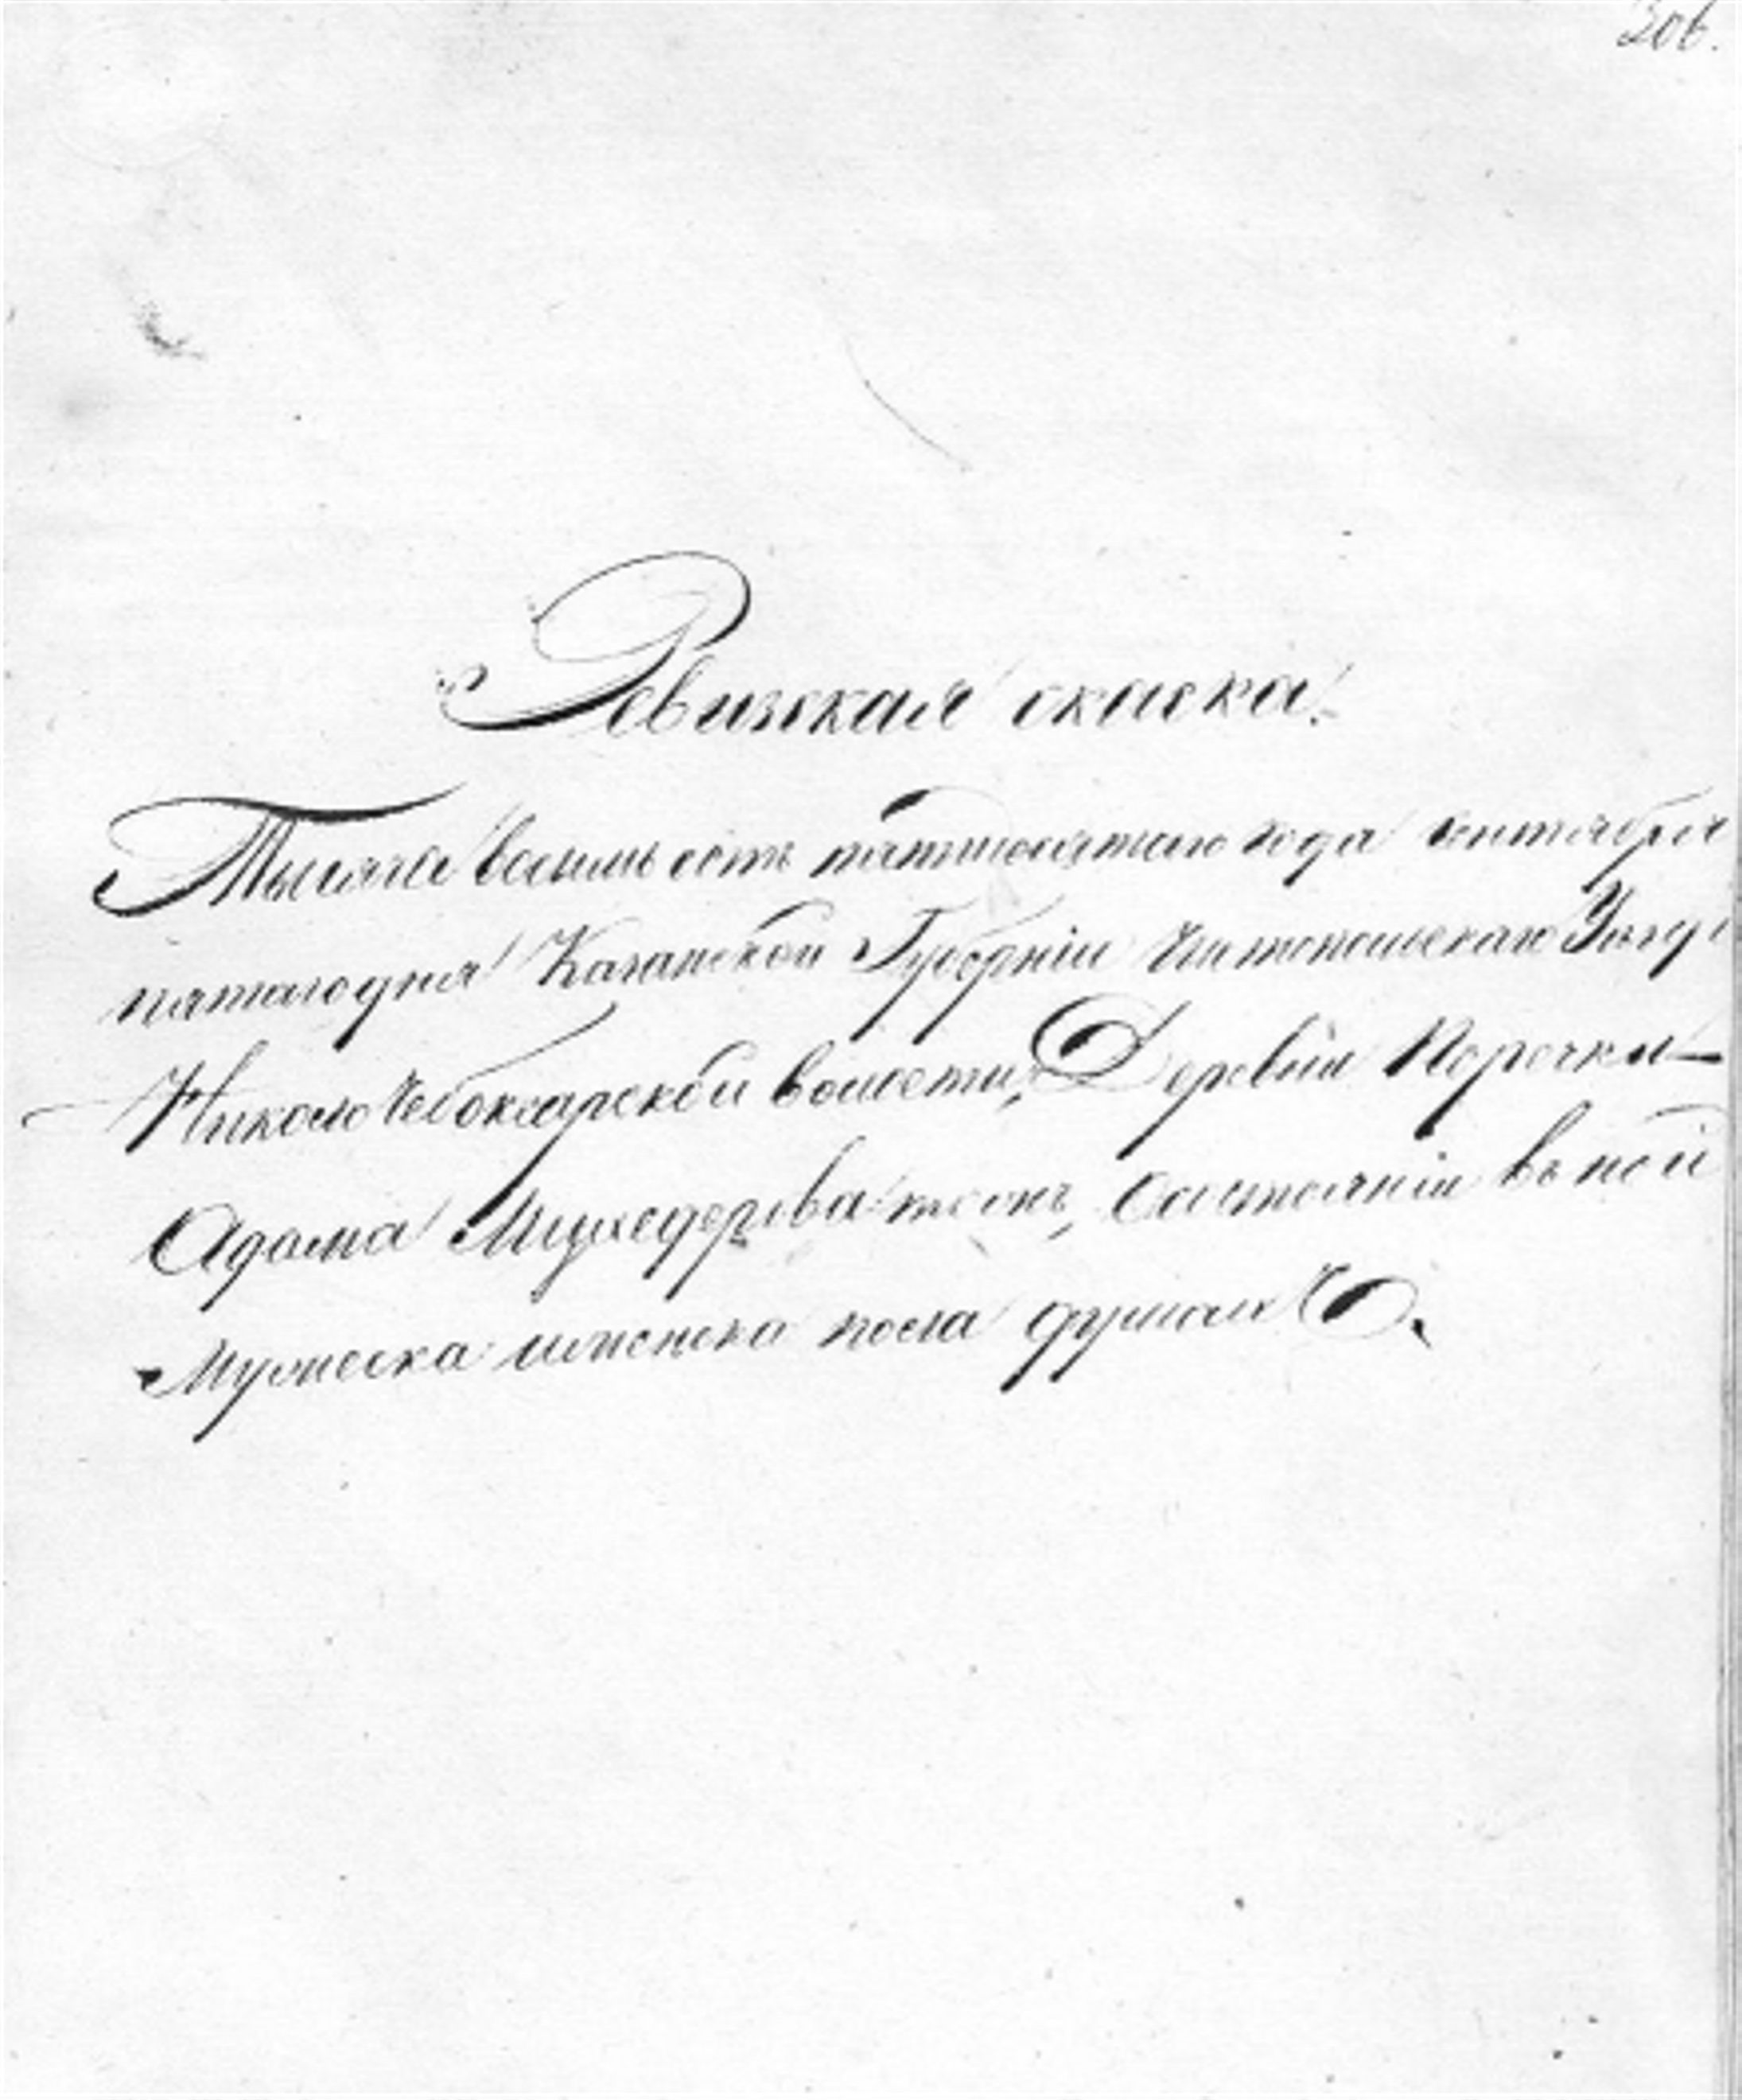 306.
Ревизская скаска.
Тысяча восемь сотъ пятидесятаго года октября
пятаго дня Казанской Губерніи Чистопольскаго Уезда
Николо Чебоксарской волости, Деревни
Адама тожъ, Состоянии въ ней
Мужеска женска пола душахъ